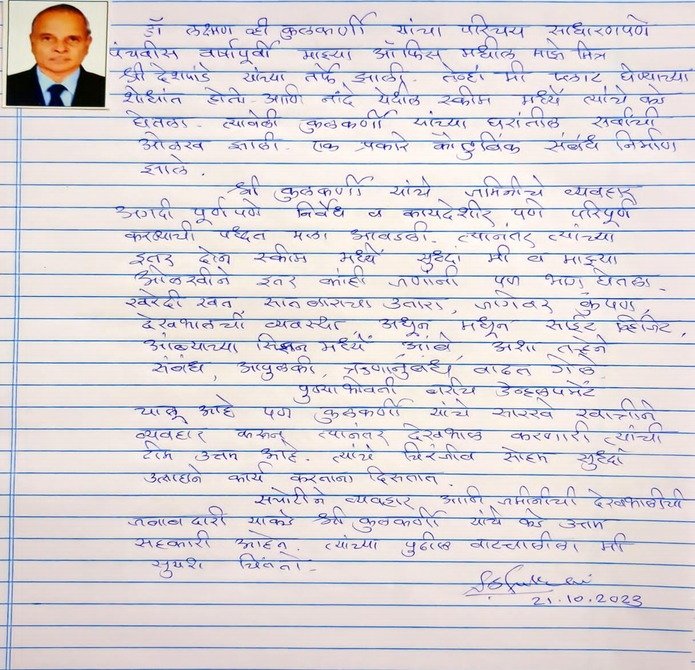 डॉ लक्ष्मण व्ही कुळकर्णी यांचा परिचय साधारणपणे
पंचवीस वर्षापूर्वी माझ्या ऑफिस मधील माझे मित्र
श्री देशपांडे यांच्या तर्फे झाली. तेव्हां मी प्लॉट घेण्याच्या
शोधांत होतो आणि नांदे येथील स्कीम मध्यें त्यांचे कडे
घेतला. त्यावेळी कुळकर्णी यांच्या घरांतील सर्वांची
ओळख झाली. एक प्रकारे कौटुंबिक संबंध निर्माण
झाले.
श्री कुळकर्णी यांचे जमिनीचे व्यवहार
अगदी पूर्णपणे निर्वेध व कायदेशीर पणे परिपूर्ण
करण्याची पध्दत मला आवडली. त्यानंतर त्यांच्या
इतर दोन स्कीम मध्यें सुध्दा मी व माझ्या
ओळखीने इतर कांही जणांनी पण भाग घेतला.
खरेदी खत सातबाराचा उतारा, जागेवर कुंपण,
देखभालची व्यवस्था, अधून मधून साईट व्हिजिट,
आंब्याच्या सिझन मध्यें आंबे अशा तऱ्हेने
संबंध, आपुलकी, ऋणानुबंध वाढत गेले.
पुण्याभोवती बरीच डेव्हलपमेंट
चालू आहे पण कुळकर्णी यांचे सारखे खात्रीने
व्यवहार करून त्यानंतर देखभाळ करणारी त्यांची
टीम उत्तम आहे. त्यांचे चिरंजीव सोहम सुध्दां
उत्साहाने कार्य करताना दिसतात.
सचोटीने व्यवहार आणि जमीनीची देखभालीची
जबाबदारी याकडे श्री कुळकर्णी यांचे कडे उत्तम
सहकारी आहेत. त्यांच्या पुढील वाटचालीला मी
सुयश चिंततो.
21.10.2023